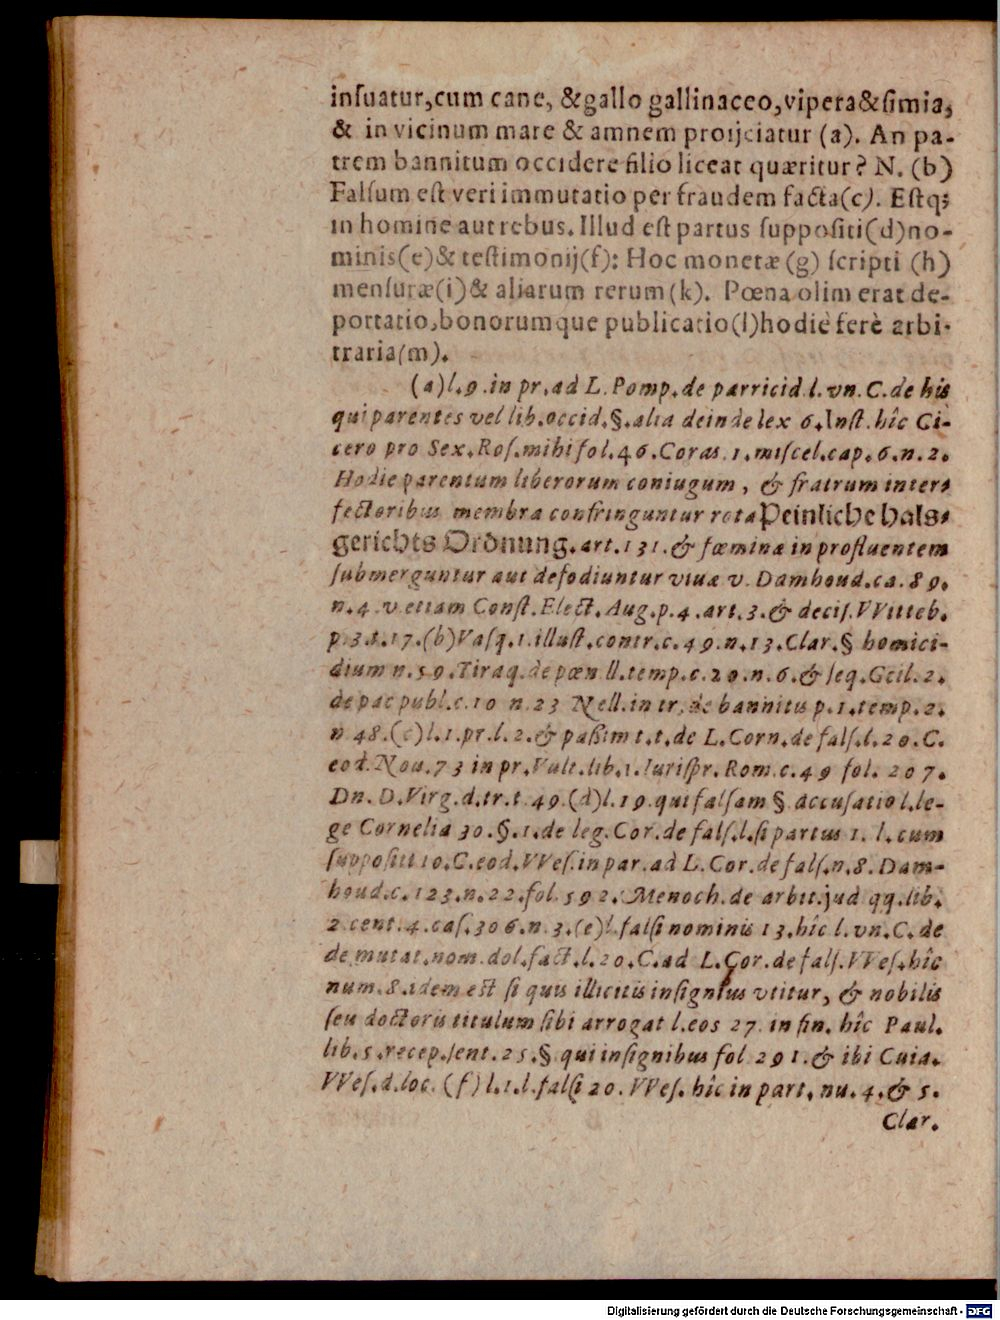 inſuatur,cum cane, &gallo gallinaceo,vipera&ſimia,
& in vicinum mare & amnem proijciatur (a). An pa-
trem bannitum occidere filio liceat quæritur? N. (b)
Falſum eſt veri immutatio per fraudem facta(c). Eſtq;
in homine aut rebus. Illud eſt partus ſuppoſiti(d)no-
minis(e)& teſtimonij(f): Hoc monetæ (g) ſcripti (h)
menſuræ(i)& aliarum rerum(k). Pœna olim erat de-
portatio,bonorumque publicatio(l)hodiè ferè arbi-
traria(m).
(a)l.9.in pr.ad L.Pomp.de parricid.l.vn.C.de his
qui parentes vel lib.occid.§.alia deinde lex 6.Inſt.hîc Ci-
cero pro Sex.Roſ.mihi fol.46.Coras.1.miſcel.cap.6.n.2.
Hodie parentum liberorum coniugum, & fratrum inter-
fectoribus membra confringuntur rota Peinliche hals-
gerichts Ordnung.art.131.& fœminæ in profluentem
ſubmerguntur aut defodiuntur viuæ v. Damhoud.ca.89.
n.4.v.etiam Conſt.Elect.Aug.p.4.art.3.& deciſ.VVitteb.
p.3.t.17.(b)Vaſq.1.illuſt.contr.c.49.n.13.Clar.§ homici-
dium n.59.Tiraq.de pœn.ll.temp.c.29.n.6.& ſeq.Geil.2.
de pac publ.c.10 n.23 Nell.in tr.de bannitis p.1.temp.2.
n 48.(c)l.1.pr.l.2.& paßim t.t.de L.Corn.de falſ.l.20.C.
eod.Nou.73 in pr.Vult.lib.1.Iuriſpr.Rom.c.49 fol. 207.
Dn. D.Virg.d.tr.t.49.(d)l.19.qui falſam § accuſatio l.le-
ge Cornelia 30.§.1.de leg.Cor.de falſ.l.ſi partus 1. l.cum
ſuppoſiti 10.C.eod.VVeſ.in par.ad L.Cor.de falſ.n.8.Dam-
houd.c.123.n.22.fol.592.Menoch.de arbit.jud qq.lib.
2 cent.4.caſ.306.n.3.(e)l.falſi nominis 13.hîc l.vn.C.de
de mutat.nom.dol.fact.l.20.C.ad L.Cor.de falſ.VVeſ.hîc
num.8.idem eſt ſi quis illicitis inſignius vtitur, & nobilis
ſeu doctoris titulum ſibi arrogat l.eos 27. in fin. hîc Paul.
lib.5.recep.ſent.25.§ qui inſignibus fol 291.& ibi Cuia.
VVeſ.d.loc. (f) l.1.l.falſi 20. VVeſ.hîc in part.nu.4.& 5.
Clar.
Digitalisierung gefördert durch die Deutsche Forschungsgemeinschaft - DFG